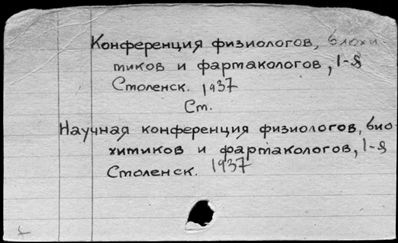 Конференция физиологов, биохи-
миков и фармакологов, 1-я
Смоленск. 1937
См.
Научная конференция физиологов, био-
химиков и фармакологов, 1-я
Смоленск. 1937